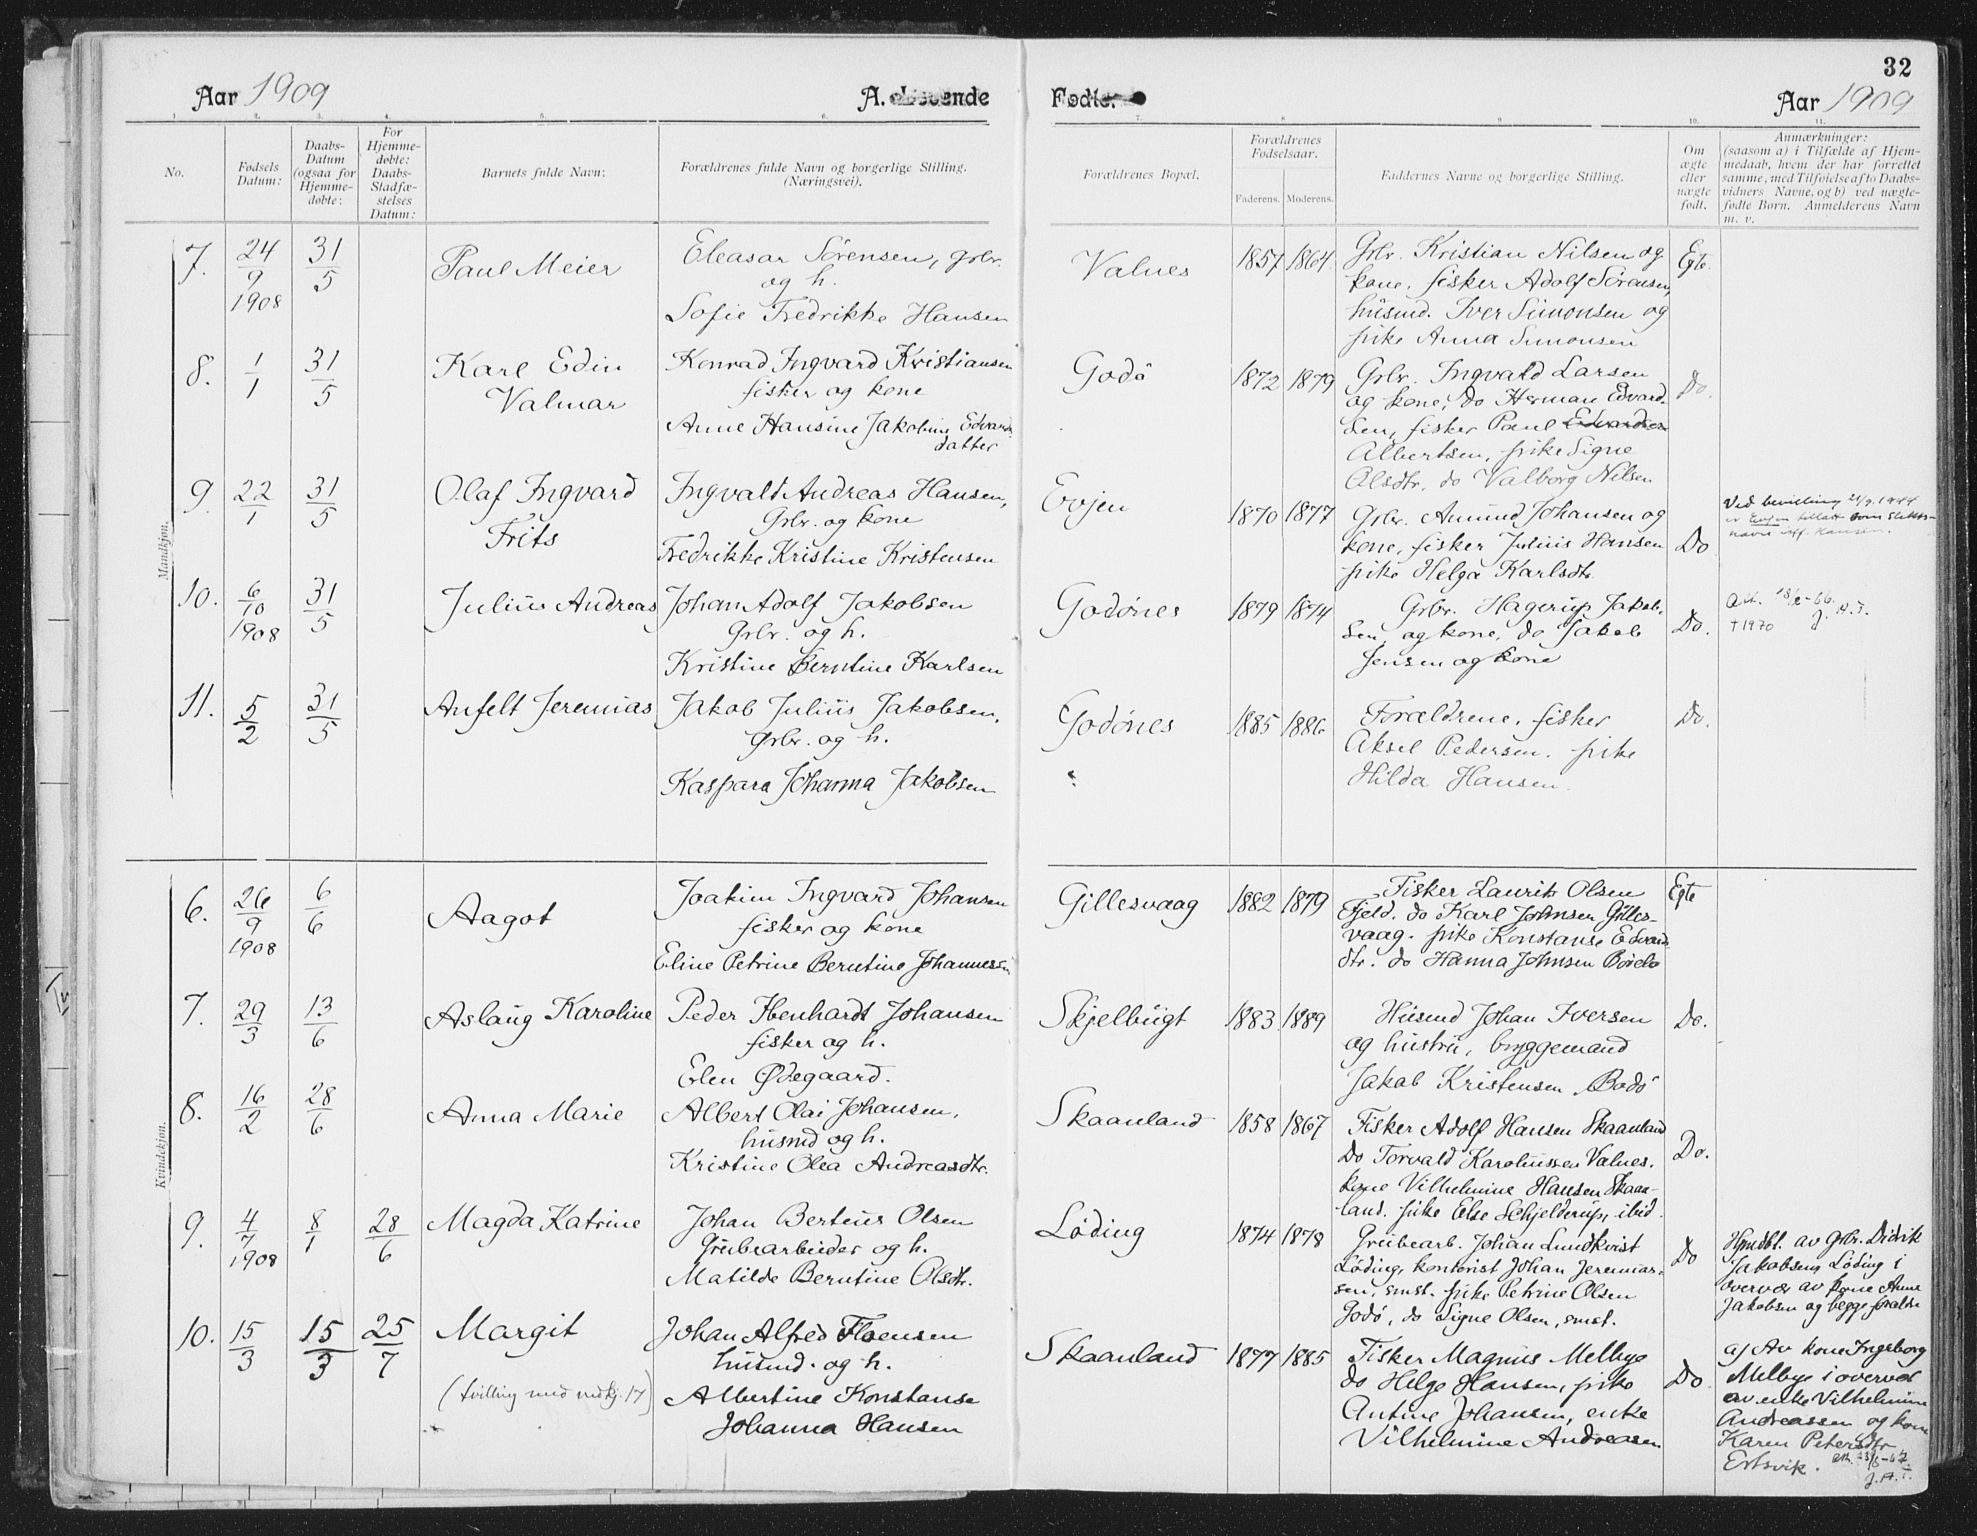 32
Aar 1909
A. Levende
Fødte.
Aar 1909
1. 2. 3. 4. 5. 6. 7. 8. 9. 10. 11.
No.
Fødsels
Datum:
Daabs-
Datum
(ogsaa for
Hjemme-
døbte:
For
Hjemme-
døbte:
Daabs-
Stadfæ-
stelses
Datum:
Barnets fulde Navn:
Forældrenes fulde Navn og borgerlige Stilling.
(Næringsvei).
Forældrenes Bopæl.
Forældrenes
Fødselsaar.
Faderens. Moderens.
Faddernes Navne og borgerlige Stilling.
Om
ægte
eller
uægte
født.
Anmærkninger:
(saasom a) i Tilfælde af Hjem-
medaab, hvem der har forrettet
samme, med Tilføielse af to Daabs-
vidners Navne, og b) ved uægte-
fødte Børn. Anmelderens Navn
m. v.
Mandkjøn.
7. 24/9 1908 31/5
Paul Meier
Eleasar Sørensen, grbr.
og h.
Sofie Fredrikke Hansen
Valnes
1857 1864
Grbr. Kristian Nilsen og
kone, fisker Adolf Sørensen,
husmd. Iver Simonsen og
pike Anna Simonsen
Egte.
8. 1/1 31/5
Karl Edin
Valmar
Konrad Ingvard Kristiansen
fisker og kone
Anne Hansine Jakobine Edvards
datter
Godø
1872 1879
Grbr. Ingvald Larsen
og kone, do Herman Edvard-
sen, fisker Paul Edvardsen
Albertsen, pike Signe
Olsdtr, do Valborg Nilsen
Do.
9. 22/1 31/5
Olaf Ingvard
Frits
Ingvald Andreas Hansen,
Grbr. og kone
Fredrikke Kristine Kristensen
Evjen
1870 1877
Grbr. Amund Johansen og
kone, fisker Julius Hansen
pike Helga Karlsdtr.
Do
Ved bevilling 21/9 1944
er Evjen tillatt som slekts-
navn
10. 6/10 1908 31/5
Julius Andreas
Johan Adolf Jakobsen
Grbr. og h.
Kristine Berntine Karlsen
Godønes
1879 1874
Grbr. Hagerup Jakob-
sen, og kone, do Jakob
Jensen og kone
Do.
Att. 18/2-66.
J. A. J.
† 1970
11. 5/2 31/5
Anfelt Jeremias
Jakob Julius Jakobsen,
Grbr. og h.
Kaspara Johanna Jakobsen
Godønes
1885 1886
Forældrene, fisker
Aksel Pedersen, pike
Hilda Hansen.
Do.
Kvindekjøn.
6. 26/9 1908 6/6
Aagot
Joakim Ingvard Johansen
fisker og kone
Eline Petrine Berntine Johannessen
Gillesvaag
1882 1879
Fisker Laurits Olsen
Fjeld. do Karl Johnsen Gilles-
vaag. pike Konstanse Edvard
dtr. do Hanna Johnsen
Egte
7. 29/3 13/6
Aslaug Karoline
Peder Ibenhardt Johansen
fisker og h.
Elen Ødegaard.
Skjelbugt
1883 1889
Husmd Johan Iversen
og hustru, bryggemand
Jakob Kristensen Bodø
Do.
8. 16/2 28/6
Anna Marie
Albert Olai Johansen,
husmd og h.
Kristine Olea Andreasdtr.
Skaanland
1858 1867
Fisker Adolf Hansen Skaanland
Do Torvald Karoliussen Valnes.
kone Vilhelmine Hansen Skaan-
land. pike Else Schjelderup, ibid.
Do.
9. 4/7 1908 8/1 28/6
Magda Katrine
Johan Berteus Olsen
Grubearbeider og h.
Matilde Berntine Olsdtr.
Løding
1874 1878
Grubearb. Johan Lundkvist
Løding, kontorist Johan Jeremias-
sen, smst. pike Petrine Olsen
Godø, do Signe Olsen, smst.
Do
Hjmdbt. av Grbr. Didrik
Jakobsen, Løding i
overvær av kone Anne
Jakobsen og begge foreldre
10. 15/3 15/3 25/7
Margit
(tvilling med mdkj. 17)
Johan Alfred Floensen
husmd. og h.
Albertine Konstanse
Johanna Hansen
Skaanland
1877 1885
Fisker Magnus Melbye
do Helge Hansen, pike
Antine Johansen, enke
Vilhelmine Andreasen
Do
a) Av kone Ingeborg
Melbye i overvær
av enke Vilhelmine
Andreassen og kone
Karen Petersdtr
Ertsvik.
J. A. J.